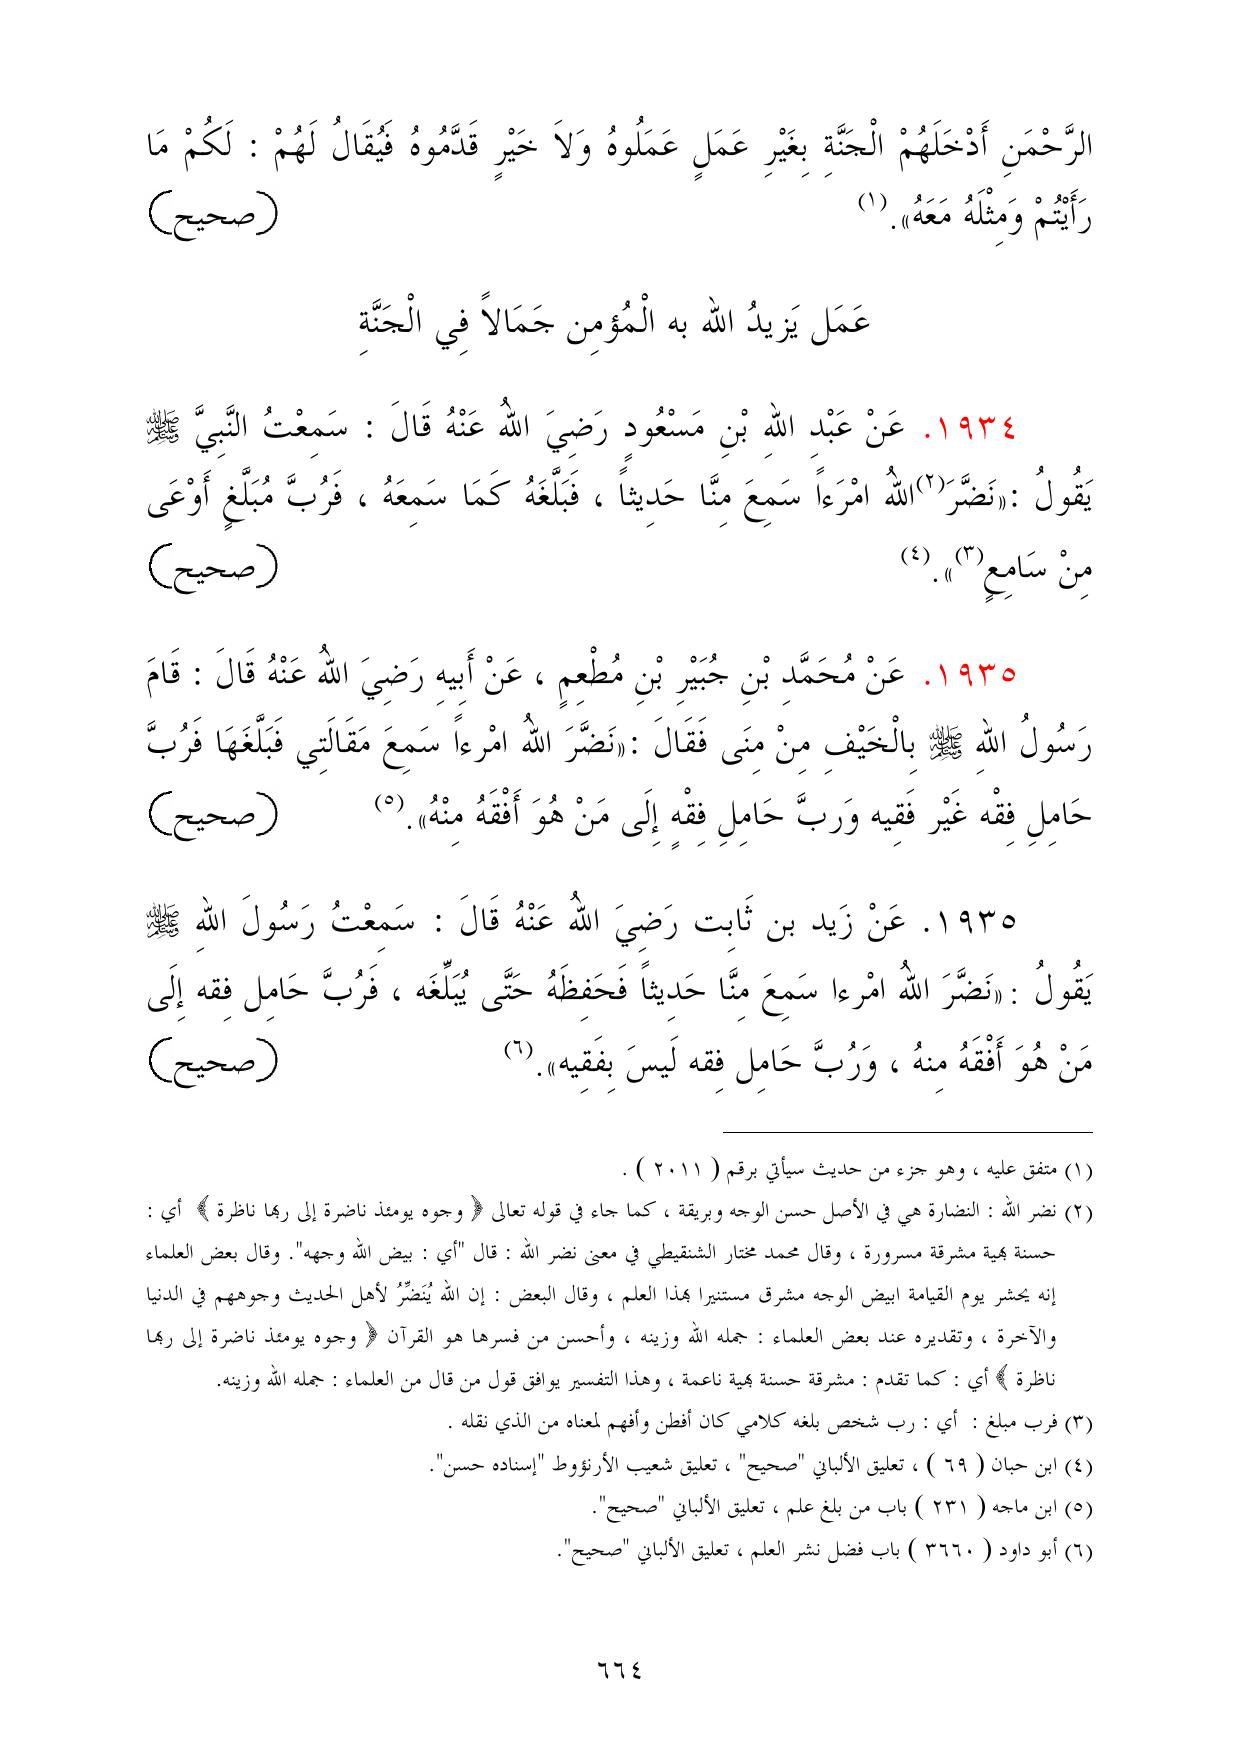 الرَّحْمَنِ أَدْخَلَهُمْ الْجَنَّةِ بِغَيْرِ عَمَلٍ عَمَلُوهُ وَلاَ خَيْرٍ قَدَّمُوهُ فَيُقَالُ لَهُمْ : لَكُمْ مَا
رَأَيْتُمْ وَمِثْلَهُ مَعَهُ». (١) (صحيح)
عَمَل يَزيدُ الله به الْمُؤمِن جَمَالاً فِي الْجَنَّةِ
١٩٣٤. عَنْ عَبْدِ اللهِ بْنِ مَسْعُودٍ رَضِيَ اللهُ عَنْهُ قَالَ : سَمِعْتُ النَّبِيَّ ﷺ
يَقُولُ :«نَضَّرَ(٢)اللهُ امْرَءاً سَمِعَ مِنَّا حَدِيثاً ، فَبَلَّغَهُ كَمَا سَمِعَهُ ، فَرُبَّ مُبَلَّغٍ أَوْعَى
مِنْ سَامِعٍ(٣)». (٤) (صحيح)
١٩٣٥. عَنْ مُحَمَّدِ بْنِ جُبَيْرِ بْنِ مُطْعِمٍ ، عَنْ أَبِيهِ رَضِيَ اللهُ عَنْهُ قَالَ : قَامَ
رَسُولُ اللهِ ﷺ بِالْخَيْفِ مِنْ مِنَى فَقَالَ :«نَضَّرَ اللهُ امْرءاً سَمِعَ مَقَالَتِي فَبَلَّغَهَا فَرُبَّ
حَامِلِ فِقْه غَيْر فَقِيه وَربَّ حَامِلِ فِقْهٍ إِلَى مَنْ هُوَ أَفْقَهُ مِنْهُ». (٥) (صحيح)
١٩٣٥. عَنْ زَيد بن ثَابِت رَضِيَ اللهُ عَنْهُ قَالَ : سَمِعْتُ رَسُولَ اللهِ ﷺ
يَقُولُ :«نَضَّرَ اللهُ امْرءا سَمِعَ مِنَّا حَدِيثاً فَحَفِظَهُ حَتَّى يُبَلِّغَه ، فَرُبَّ حَامِل فِقه إِلَى
مَنْ هُوَ أَفْقَهُ مِنهُ ، وَرُبَّ حَامِل فِقه لَيسَ بِفَقِيه». (٦) (صحيح)
(١) متفق عليه ، وهو جزء من حديث سيأتي برقم ( ٢٠١١ ) .
(٢) نضر الله : النضارة هي في الأصل حسن الوجه وبريقة ، كما جاء في قوله تعالى ﴿ وجوه يومئذ ناضرة إلى ربها ناظرة ﴾ أي :
حسنة بهية مشرقة مسرورة ، وقال محمد مختار الشنقيطي في معنى نضر الله : قال "أي : بيض الله وجهه". وقال بعض العلماء
إنه يحشر يوم القيامة ابيض الوجه مشرق مستنيرا بهذا العلم ، وقال البعض : إن الله يُنَضِّرُ لأهل الحديث وجوههم في الدنيا
والآخرة ، وتقديره عند بعض العلماء : جمله الله وزينه ، وأحسن من فسرها هو القرآن ﴿ وجوه يومئذ ناضرة إلى ربها
ناظرة ﴾ أي : كما تقدم : مشرقة حسنة بهية ناعمة ، وهذا التفسير يوافق قول من قال من العلماء : جمله الله وزينه.
(٣) فرب مبلغ : أي : رب شخص بلغه كلامي كان أفطن وأفهم لمعناه من الذي نقله .
(٤) ابن حبان ( ٦٩ ) ، تعليق الألباني "صحيح" ، تعليق شعيب الأرنؤوط "إسناده حسن".
(٥) ابن ماجه ( ٢٣١ ) باب من بلغ علم ، تعليق الألباني "صحيح".
(٦) أبو داود ( ٣٦٦٠ ) باب فضل نشر العلم ، تعليق الألباني "صحيح".
٦٦٤